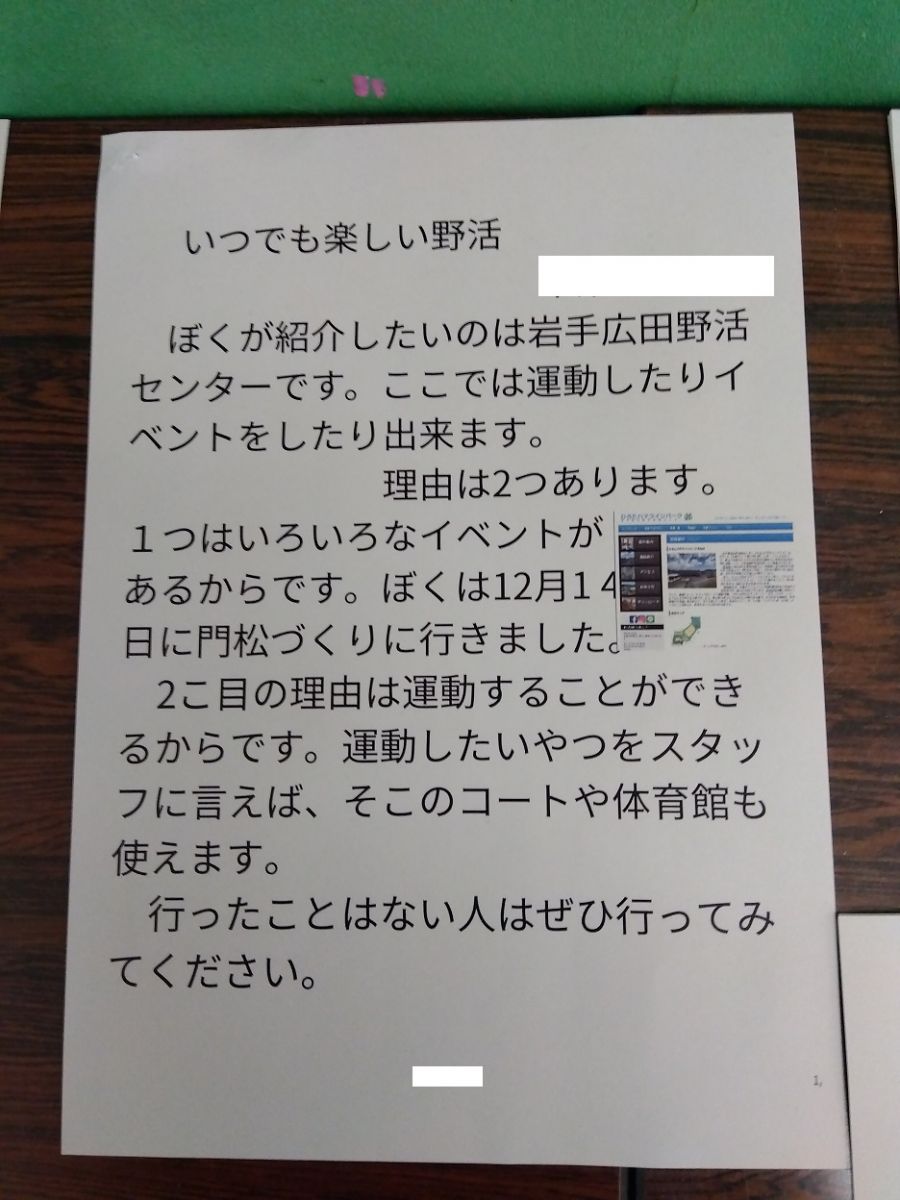 いつでも楽しい野活
ぼくが紹介したいのは岩手広田野活
センターです。ここでは運動したりイ
ベントをしたり出来ます。
理由は2つあります。
１つはいろいろなイベントが
あるからです。ぼくは12月1４
日に門松づくりに行きました。
2こ目の理由は運動することができ
るからです。運動したいやつをスタッ
フに言えば、そこのコートや体育館も
使えます。
行ったことはない人はぜひ行ってみ
てください。